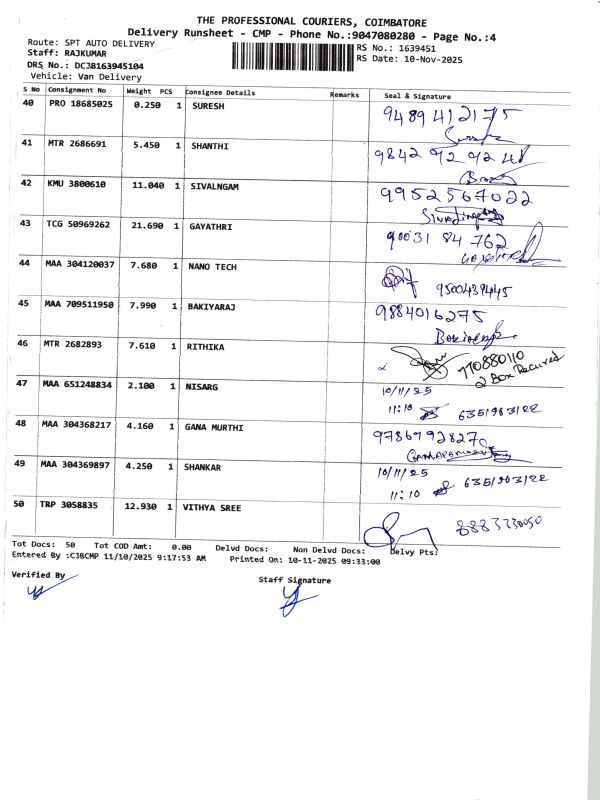 THE PROFESSIONAL COURIERS, COIMBATORE
Delivery Runsheet - CMP - Phone No.:9047080280 - Page No.:4
Route: SPT AUTO DELIVERY RS No.: 1639451
Staff: RAJKUMAR RS Date: 10-Nov-2025
DRS No.: DCJB163945104
Vehicle: Van Delivery
S No Consignment No Weight PCS Consignee Details Remarks Seal & Signature
40 PRO 18685025 0.250 1 SURESH 9489412175
41 MTR 2686691 5.450 1 SHANTHI 9842 92 92 41
42 KMU 3800610 11.040 1 SIVALNGAM 9952567022
43 TCG 50969262 21.690 1 GAYATHRI 90031 84 762
44 MAA 304120037 7.680 1 NANO TECH 9500439445
45 MAA 709511950 7.990 1 BAKIYARAJ 9884016275
46 MTR 2682893 7.610 1 RITHIKA 770880110
2 Box Recived
47 MAA 651248834 2.100 1 NISARG 10/11/25
11:10 635/903/22
48 MAA 304368217 4.160 1 GANA MURTHI 9786992827
49 MAA 304369897 4.250 1 SHANKAR 10/11/25
11:10 635/903/22
50 TRP 3058835 12.930 1 VITHYA SREE
Tot Docs: 50 Tot COD Amt: 0.00 Delvd Docs: Non Delvd Docs: Delvy Pts:
Entered By :CJBCMP 11/10/2025 9:17:53 AM Printed On: 10-11-2025 09:33:00
Verified By Staff Signature